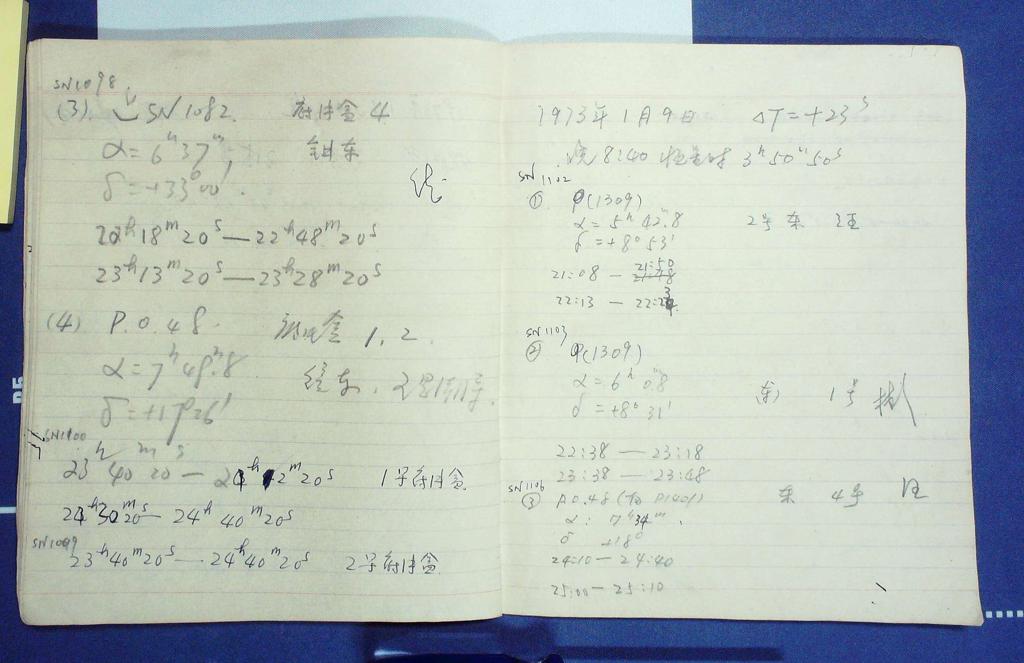 SN1098
(3). SN1082. 底片盒 4
α=6ʰ37ᵐ,
δ=+33°00′.
22ʰ18ᵐ20ˢ—22ʰ48ᵐ20ˢ
23ʰ13ᵐ20ˢ—23ʰ28ᵐ20ˢ
(4) P.O.48. 底片盒 1,2.
α=7ʰ48ᵐ.8
δ=+17°26′
SN1100
23ʰ40ᵐ20ˢ— 24ʰ12ᵐ20ˢ 1号底片盒
24ʰ30ᵐ20ˢ— 24ʰ40ᵐ20ˢ
SN1099
23ʰ40ᵐ20ˢ—24ʰ40ᵐ20ˢ 2号底片盒
1973年1月9日 ΔT=+23ˢ
晚8:40 恒星时 3ʰ50ᵐ50ˢ
SN1102
① P(1309)
α=5ʰ42ᵐ.8 2号 东 汪
δ=+8°53′
21:50
21:08 — 21:48
22:13 —
SN1103
② P(1309)
α=6ʰ0ᵐ.8 东 1号
δ=+8°31′
22:38 — 23:18
23:38 — 23:48
SN1106
③ P.O.48 (To P1401) 东 4号 汪
α: 7ʰ34ᵐ.
δ +18°
24:10 — 24:40
25:00 — 25:10